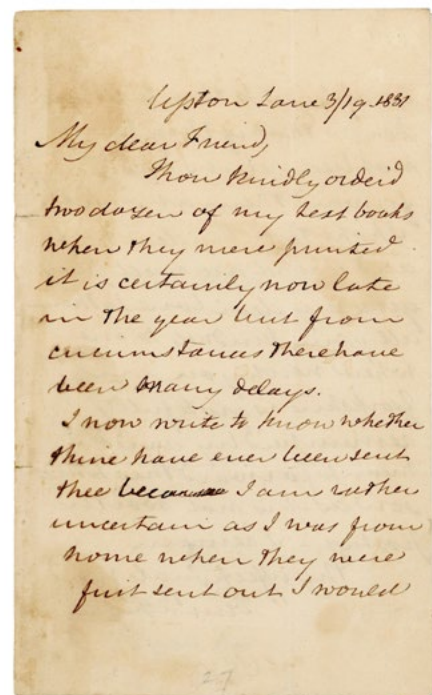 Upton Lane 3/19. 1831
My dear Friend,
Thou kindly orderd
two dozen of my text books
when they were printed.
it is certainly now late
in the year but from
circumstances there have
been many delays.
I now write to know whether
thine have ever been sent
thee because I am rather
uncertain as I was from
home when they were
first sent out I would
27